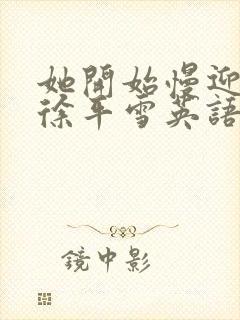 她開始慢迎
徐平雪英語
鏡中影